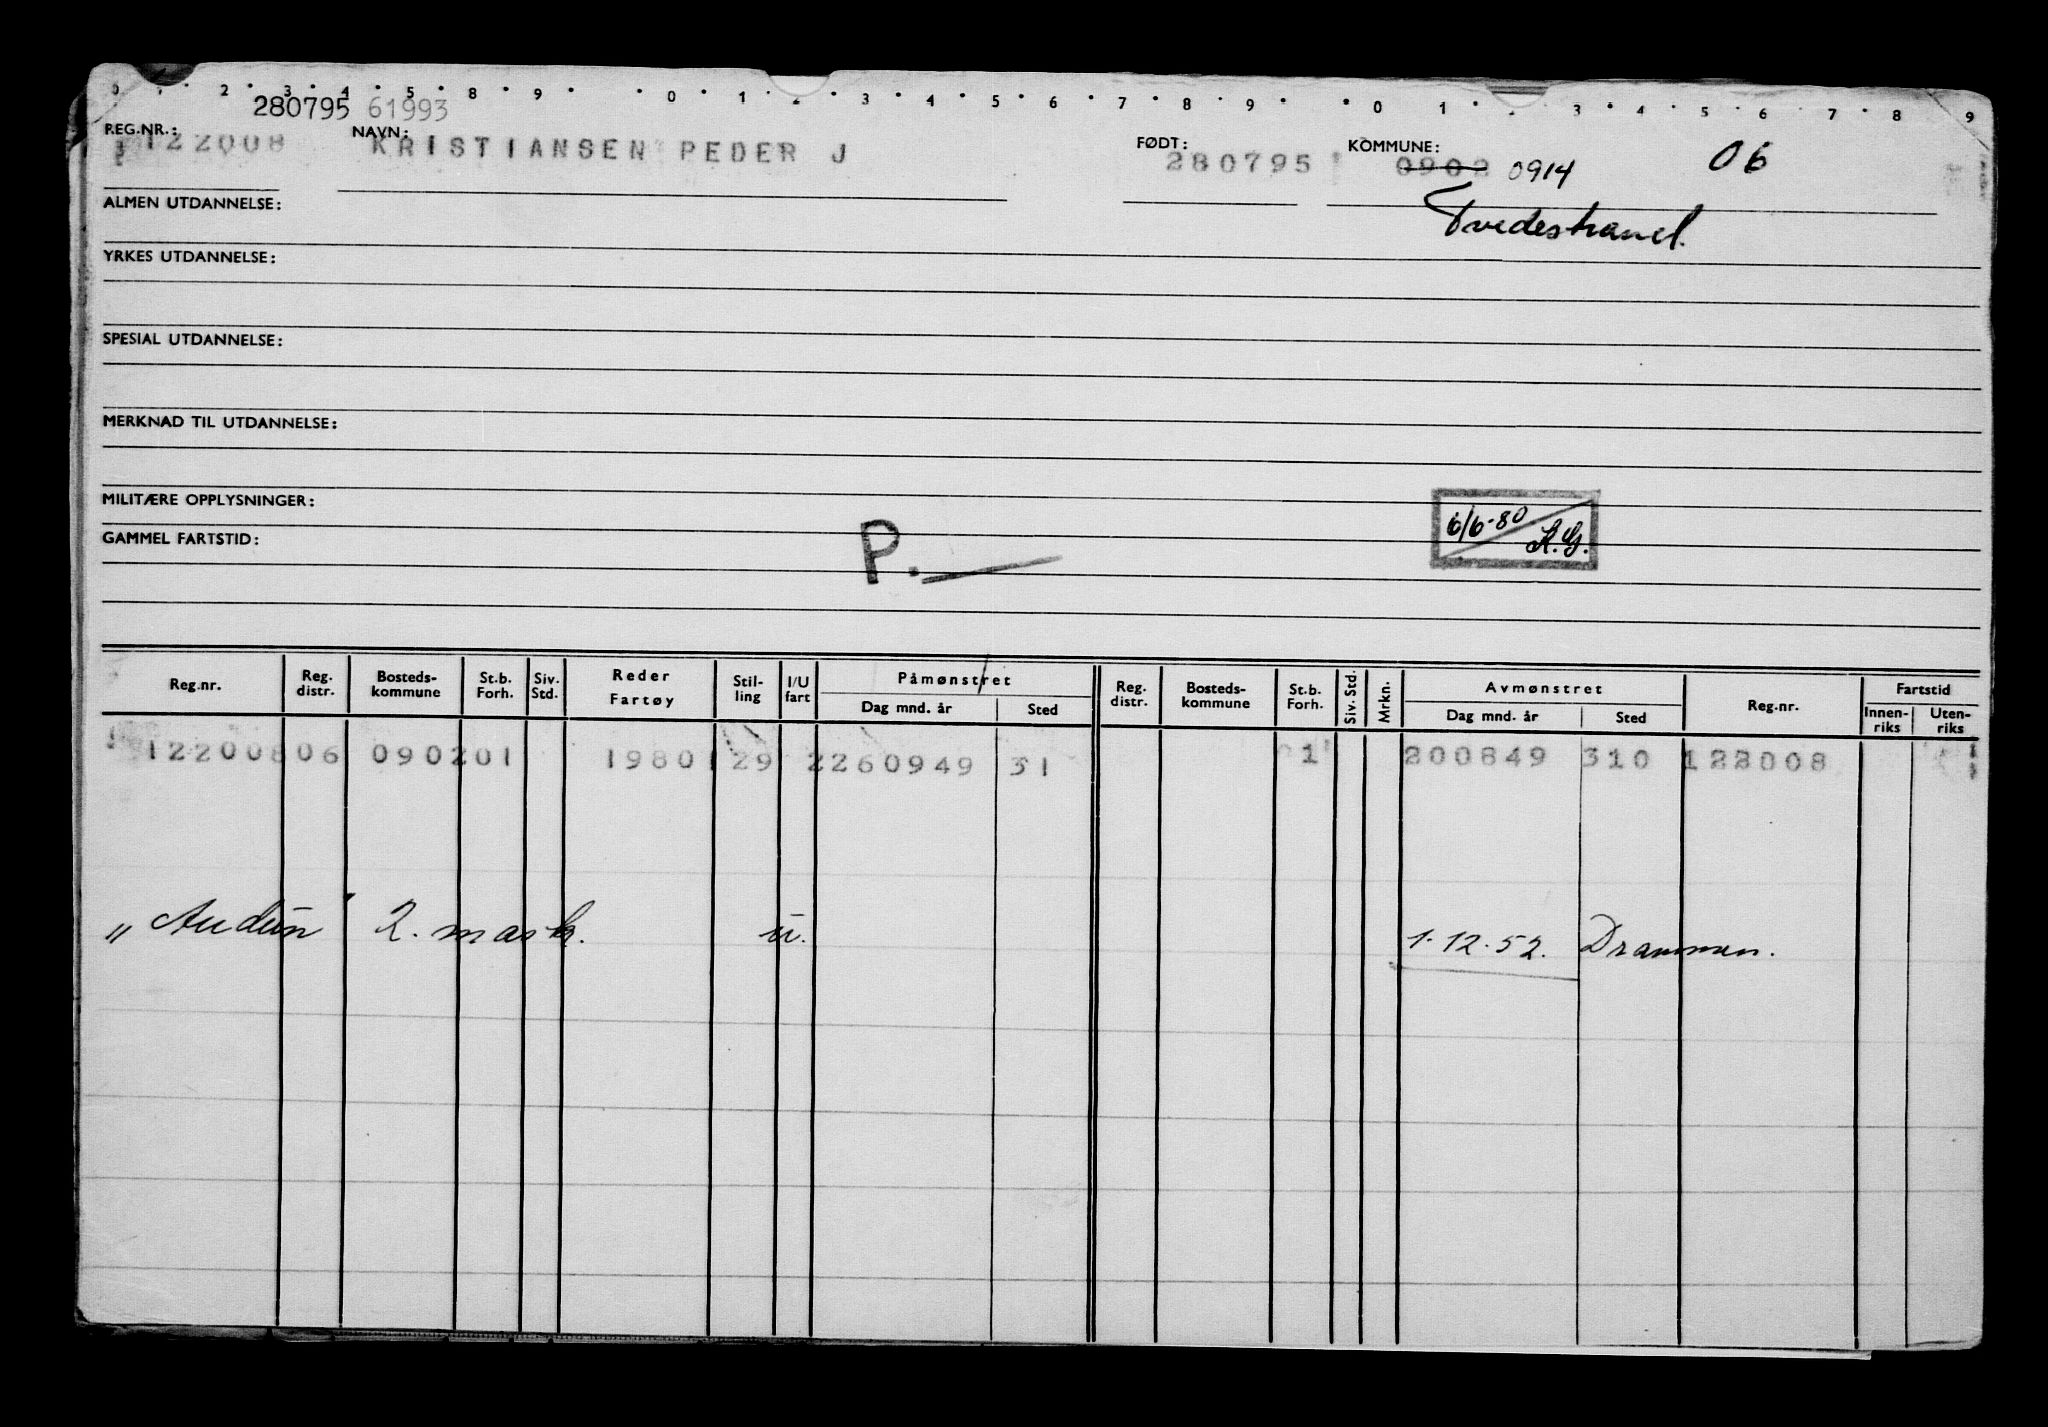 0 · 2 · 3 · 4 · 5 · 8 · 9 · · 0 · 1 · 2 · 3 · 4 · 5 · 6 · 7 · 8 · 9 · · 0 · 1 · 3 · 4 · 5 · 6 · 7 · 8 · 9
280795 61993
REG.NR.: NAVN: FØDT: KOMMUNE:
122008 KRISTIANSEN PEDER J 280795 0902 0914 06
ALMEN UTDANNELSE: Tvedestrand.
YRKES UTDANNELSE:
SPESIAL UTDANNELSE:
MERKNAD TIL UTDANNELSE:
MILITÆRE OPPLYSNINGER:
6/6-80 K.G.
GAMMEL FARTSTID:
P.
Reg.nr. Reg. distr. Bosteds-kommune St.b. Forh. Siv. Std. Reder Fartøy Stil-ling I/U fart Påmønstret Dag mnd. år Sted Reg. distr. Bosteds-kommune St.b. Forh. Siv. Std. Mrkn. Avmønstret Dag mnd. år Sted Reg.nr. Fartstid Innen-riks Uten-riks
122008 06 0902 01 1980 1 29 2 260949 31 01 200849 310 122008
"Audun" 2. mask. u. 1.12.52. Drammen.